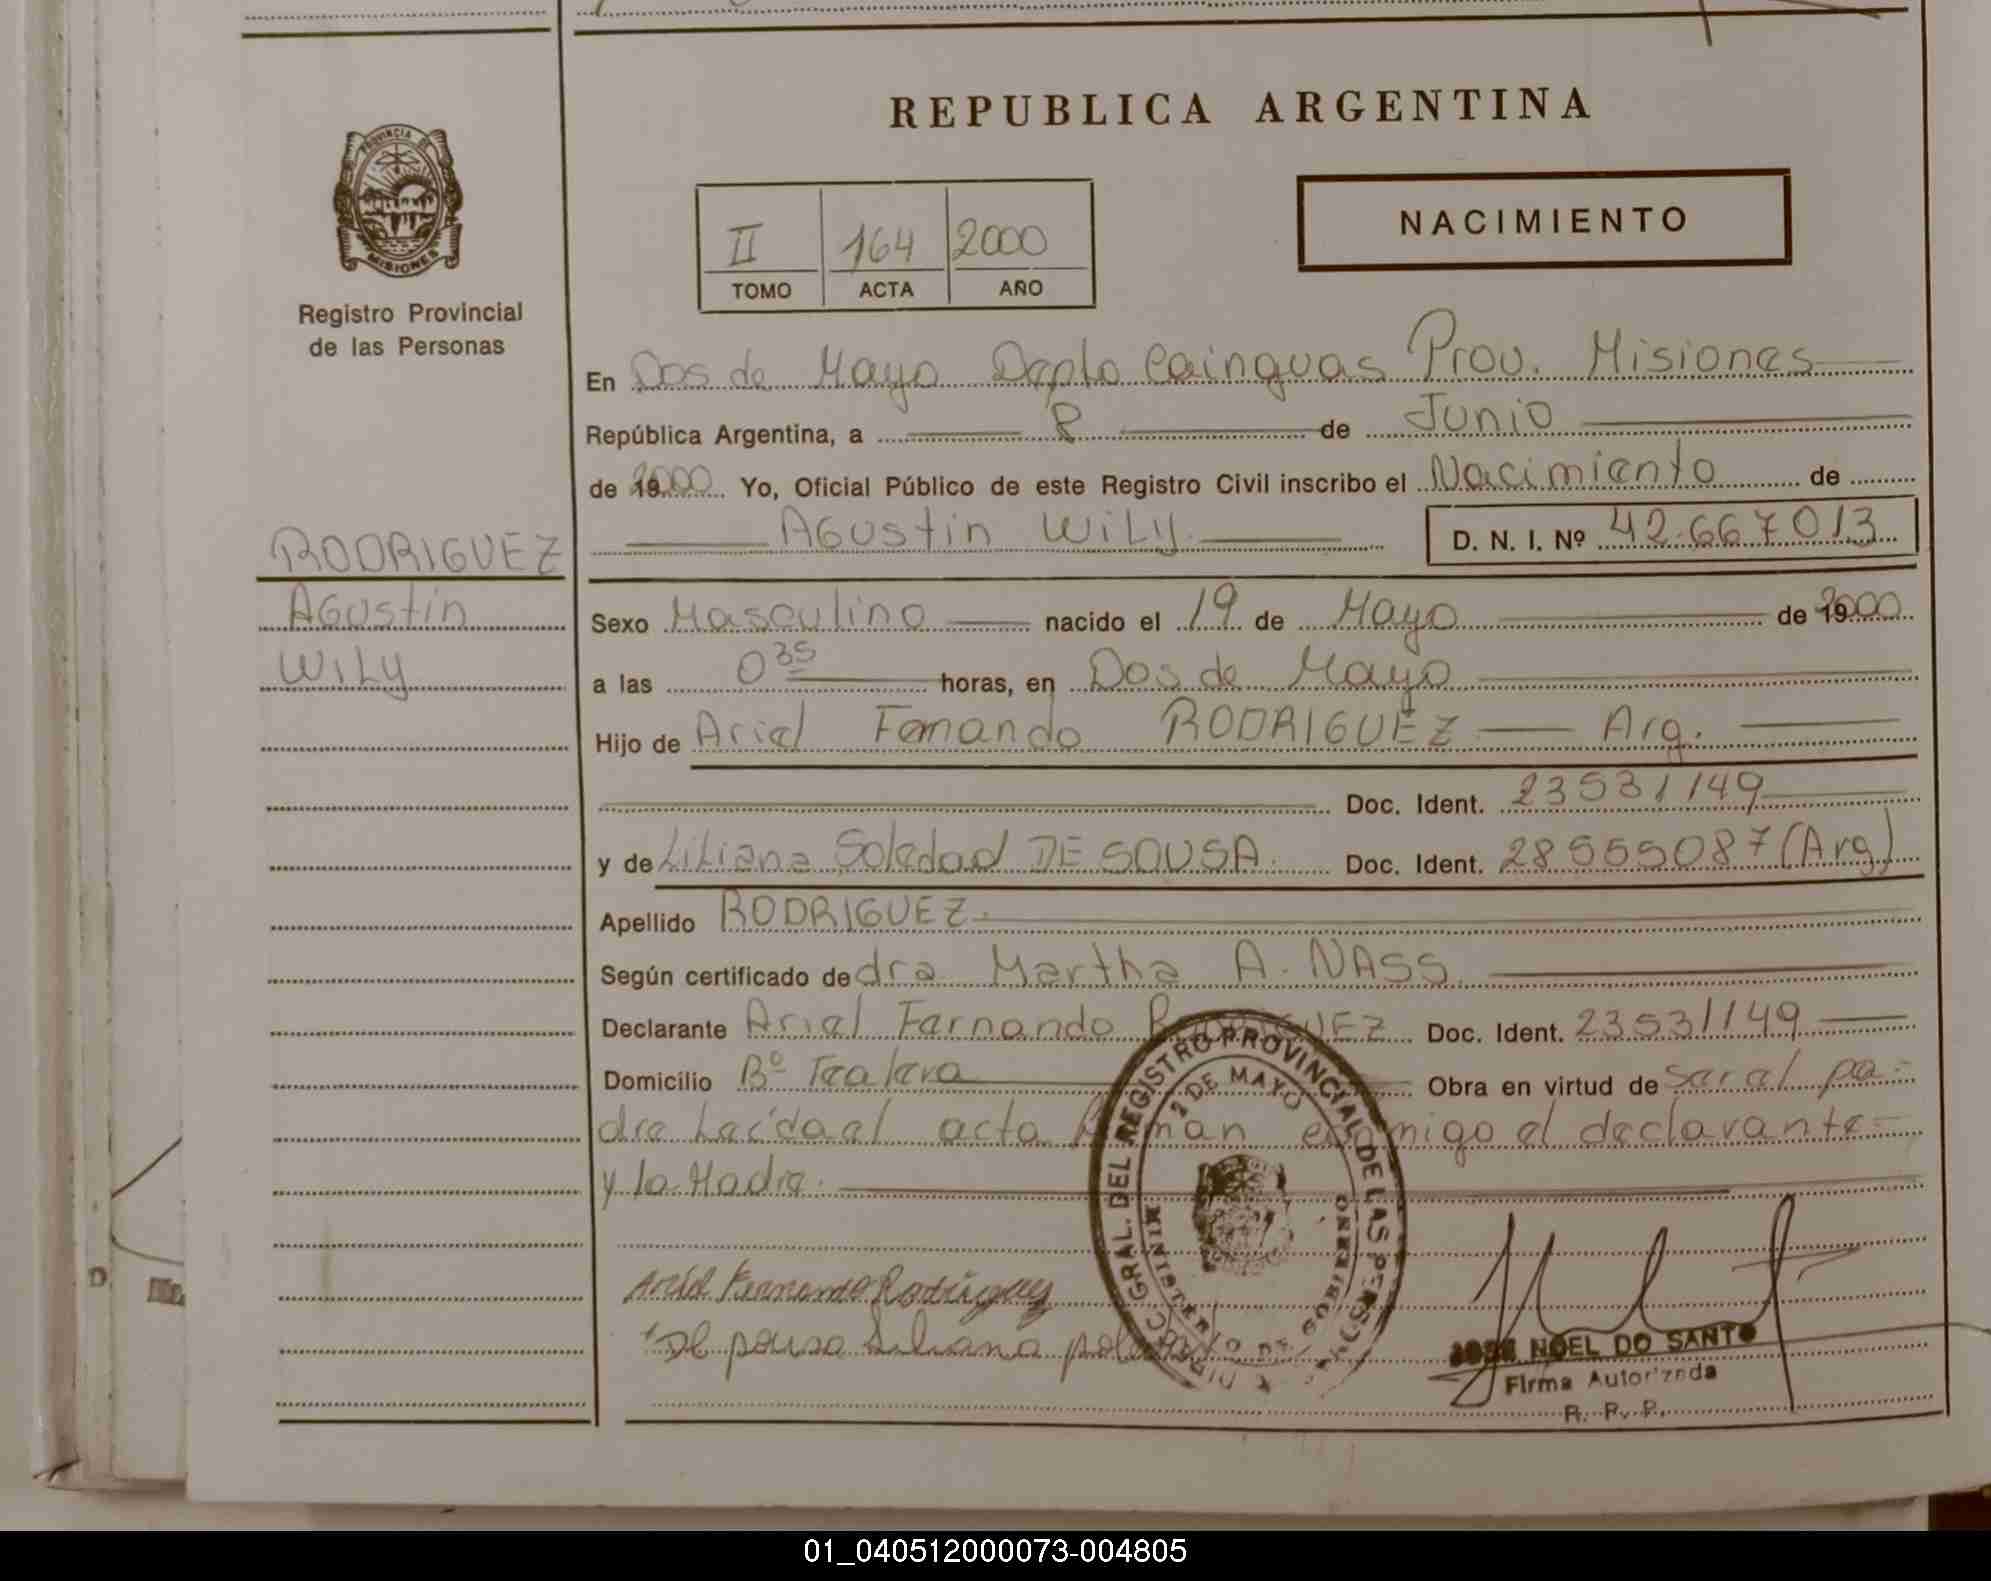 REPUBLICA ARGENTINA
PROVINCIA DE
MISIONES
Registro Provincial
de las Personas
NACIMIENTO
II 164 2000
TOMO ACTA AÑO
En Dos de Mayo Depto Cainguas Prov. Misiones
República Argentina, a 8 de Junio
de 2000 Yo, Oficial Público de este Registro Civil inscribo el Nacimiento de
Agustin Wily D. N. I. Nº 42.667013
RODRIGUEZ
Agustin
Wily
Sexo Masculino nacido el 19 de Mayo de 2000
a las 0 35 horas, en Dos de Mayo
Hijo de Ariel Fernando RODRIGUEZ Arg.
Doc. Ident. 23531149
y de Liliana Soledad DE SOUSA. Doc. Ident. 28555087 (Arg)
Apellido RODRIGUEZ.
Según certificado de dra Martha A. NASS.
Declarante Ariel Fernando RODRIGUEZ Doc. Ident. 23531149
Domicilio Bº Obra en virtud de ser el pa-
dre Leída el acta Firman conmigo el declarante
y la Madre.
DIREC GRAL. DEL REGISTRO PROVINCIAL DE LAS PERSONAS
2 DE MAYO
MINISTERIO DE GOBIERNO
Ariel Fernando Rodriguez
De sousa Liliana soledad
JOSE NOEL DO SANTO
Firma Autorizada
R. P. P.
01_040512000073-004805